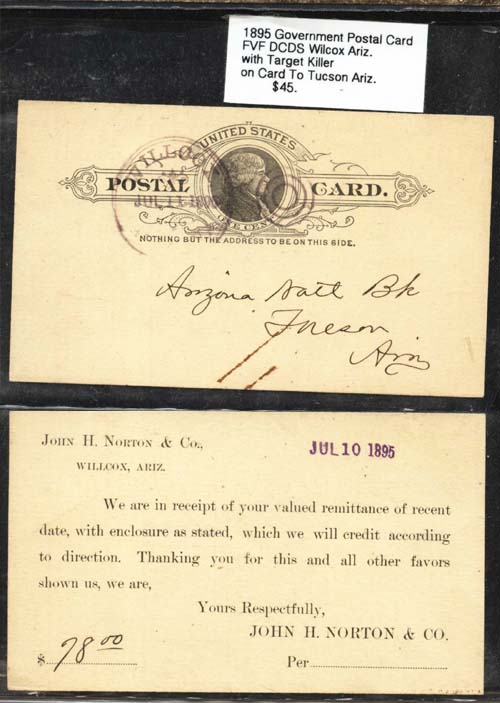 1895 Government Postal Card
FVF DCDS Wilcox Ariz.
with Target Killer
on Card To Tucson Ariz.
$45.
WILLCOX
UNITED STATES
POSTAL CARD.
JUL 11
ONE CENT
NOTHING BUT THE ADDRESS TO BE ON THIS SIDE.
Arizona Natl Bk
Tucson
Ariz
JOHN H. NORTON & CO.,
WILLCOX, ARIZ.
JUL 10 1895
We are in receipt of your valued remittance of recent
date, with enclosure as stated, which we will credit according
to direction. Thanking you for this and all other favors
shown us, we are,
Yours Respectfully,
JOHN H. NORTON & CO.
$ 78 00
Per